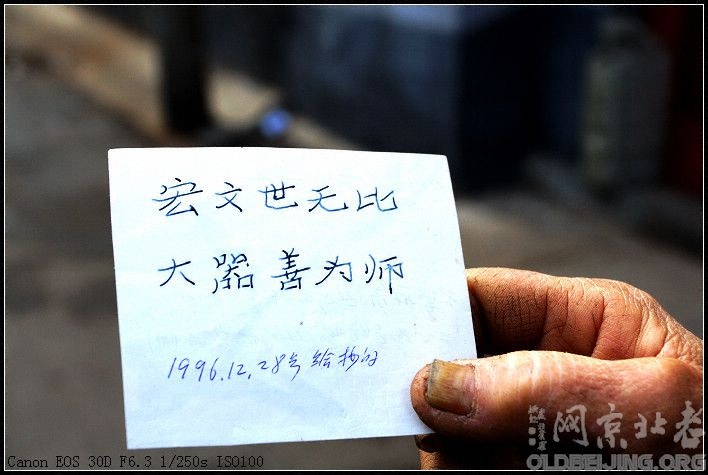 宏文世无比
大器善为师
1996.12.28号给抄的
老北京网
OLDBEIJING.ORG
Canon EOS 30D F6.3 1/250s ISO100